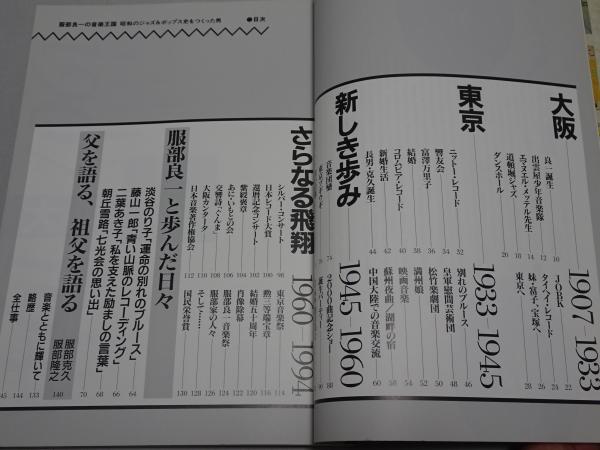 服部良一の音楽王国 昭和のジャズ&ポップス史をつくった男 ●目次
大阪 1907 1933
良一誕生 10
出雲屋少年音楽隊 12
エマヌエル・メッテル先生 14
道頓堀ジャズ 18
ダンスホール 20
JOBK 22
タイヘイ・レコード 24
妹・富子、宝塚へ 26
東京へ 28
東京 1933 1945
ニットー・レコード 32
響友会 34
富澤万里子 36
結婚 38
コロムビア・レコード 40
新婚生活 42
長男・克久誕生 44
別れのブルース 46
皇軍慰問芸術団 48
松竹楽劇団 50
満州娘 52
映画音楽 54
蘇州夜曲/湖畔の宿 58
中国大陸での音楽交流 60
新しき歩み 1945 1960
音楽団欒 74
2000曲記念ショー 80
さらなる飛翔 1960 1994
シルバー・コンサート 98
日本レコード大賞 100
還暦記念コンサート 102
紫綬褒章 104
あにいもとの会
交響詩「ぐんま」
大阪カンタータ 110
日本音楽著作権協会 112
東京音楽祭 114
勲三等瑞宝章 116
結婚五十周年
肖像除幕
服部良一音楽祭
服部家の人々
そして…… 128
国民栄誉賞 130
服部良一と歩んだ日々
淡谷のり子「運命の別れのブルース」 64
藤山一郎「青い山脈のレコーディング」 66
二葉あき子「私を支えた励ましの言葉」 68
朝丘雪路「七光会の思い出」 70
父を語る、祖父を語る 服部克久 服部隆之 140
音楽とともに輝いて 133
略歴 144
全仕事 145